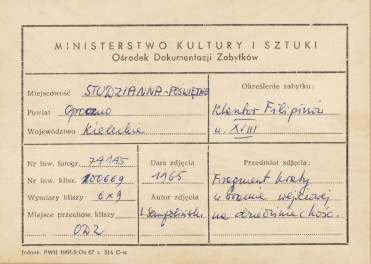 MINISTERSTWO KULTURY I SZTUKI
Ośrodek Dokumentacji Zabytków
Miejscowość STUDZIANNA-POŚWIĘTNE
Powiat Opoczno
Województwo Kieleckie
Określenie zabytku:
Klasztor Filipinów
w. XVIII
Nr inw. fotogr. 74145
Nr inw. klisz. 100669
Wymiary kliszy 6x9
Miejsce przechow. kliszy
ODZ
Data zdjęcia
1965
Autor zdjęcia
Przedmiot zdjęcia:
Fragment kraty
w bramie wejściowej
na dziedziniec kośc.
Jednor. PWII 1967/8.Os 67 z. 314 C-w